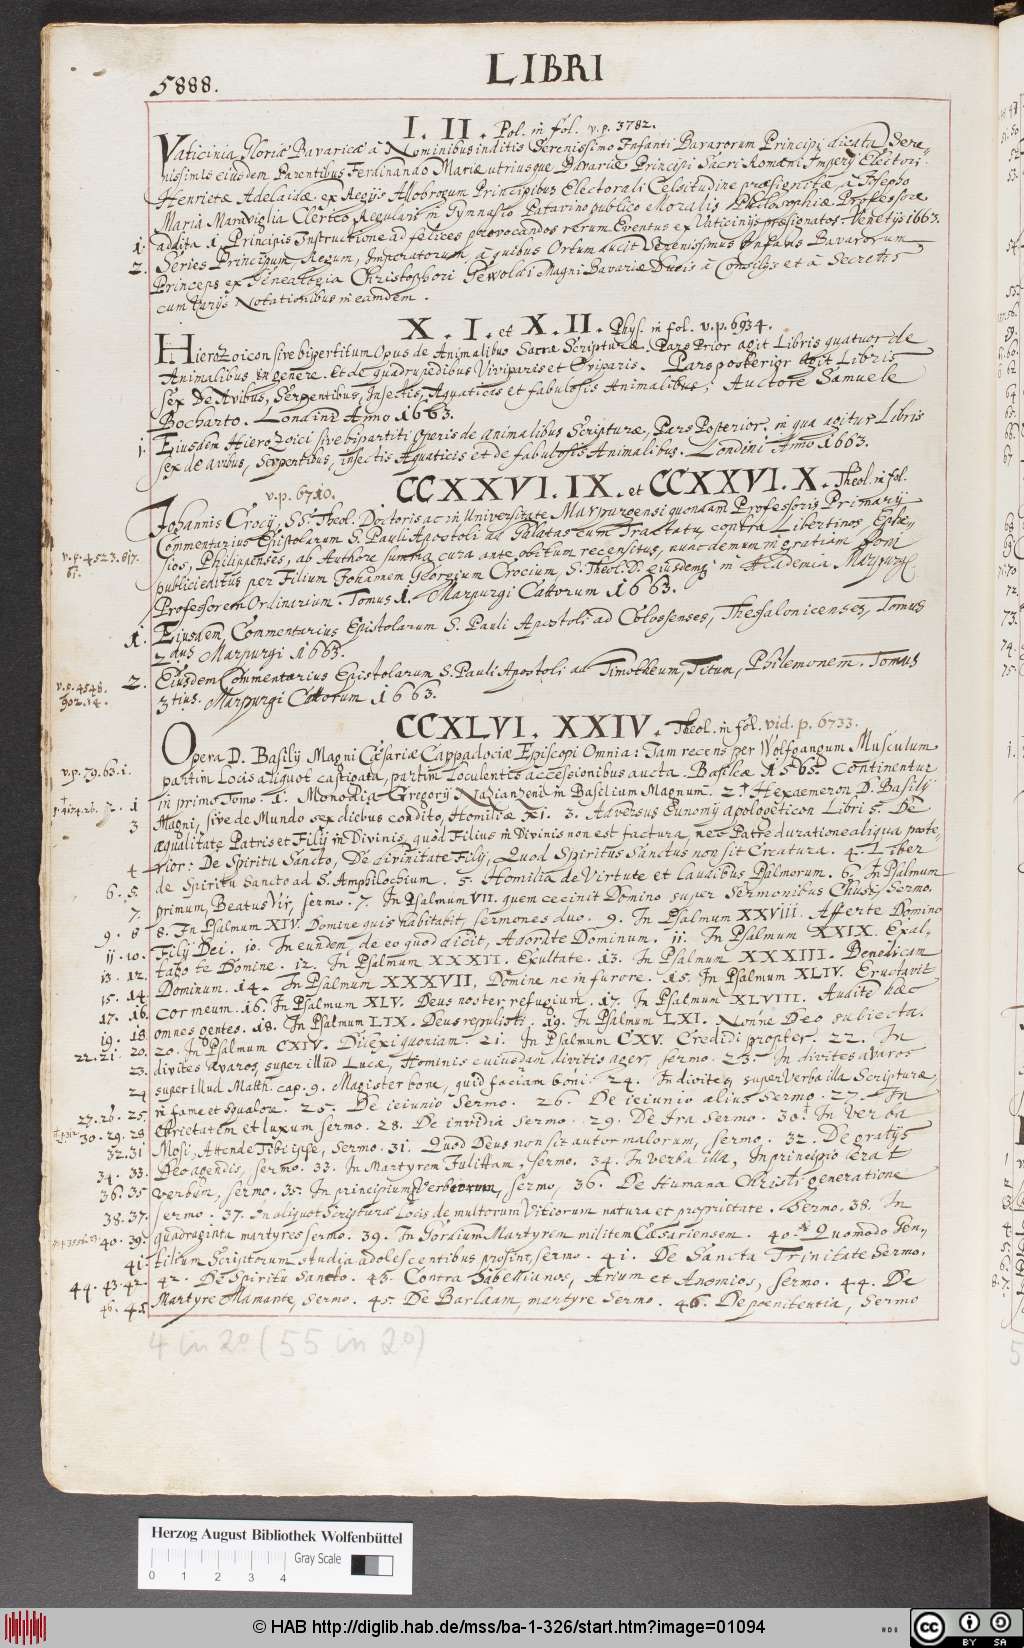 5888.
LIBRI
I. II. Pol. in fol. v. p. 3782.
Vaticinia Gloriæ Bavaricæ à Nominibus inditis Serenissimo Infanti Bavarorum Principi dicata, Sere-
nissimis eiusdem Parentibus Ferdinando Mariæ utriusque Bavariæ Principi Sacri Romani Imperij Electori.
Henrietæ Adelaidæ ex Regijs Allobrogum Principibus Electorali Celsitudine præsignitæ, à Josepho
Maria Maraviglia Clerico Regulari in Gymnasio Patavino publico Moralis Philosophiæ Professore
1. addita 1. Principis Instructione ad felices provocandos rerum Eventus ex Vaticinijs præsignatos. Venetijs 1663.
2. Series Principum, Regum, Imperatorum, à quibus Ortum ducit Serenissimus Infans Bavarorum
Princeps ex Genealogia Christophori Gewoldi Magni Bavariæ Ducis à Consilijs et à Secretis
cum turijs Notationibus in eamdem.
X. I. et X. II. Phys. in fol. v. p. 6934.
Hierozoicon sive bipertitum Opus de Animalibus Sacræ Scripturæ. Pars Prior agit Libris quatuor de
Animalibus in genere. Et de quadrupedibus Viviparis et Oviparis. Pars posterior agit Libris
sex De Avibus, Serpentibus, Insectis, Aquaticis et fabulosis Animalibus, Auctore Samuele
Bocharto. Londini Anno 1663.
1. Ejusdem Hierozoici sive bipartiti Operis de animalibus Scripturæ, Pars Posterior, in qua agitur Libris
sex de avibus, Serpentibus, insectis Aquaticis et de fabulosis Animalibus. Londini Anno 1663.
v. p. 6710. CCXXVI. IX. et CCXXVI. X. Theol. in fol.
Johannis Crocij, SS. Theol. Doctoris ac in Universitate Marpurgensi quondam Professoris Primarij
Commentarius Epistolarum S. Pauli Apostoli ad Galatas cum Tractatu contra Libertinos, Ephe-
v. p. 4523. 617. sios, Philippenses, ab Authore summa cura ante obitum recensitus, nunc demum in gratiam boni
61. publici editus per Filium Johannem Georgium Crocium, S. Theol. D. eiusdemq in Academia Marpurg.
Professorem Ordinarium. Tomus 1. Marpurgi Cattorum 1663.
1. Ejusdem Commentarius Epistolarum S. Pauli Apostoli ad Colossenses, Thessalonicenses, Tomus
2dus Marpurgi 1663.
v. p. 4548. 2. Eiusdem Commentarius Epistolarum S. Pauli Apostoli ad Timotheum, Titum, Philemonem. Tomus
902. 14. 3tius. Marpurgi Cattorum 1663.
CCXLVI. XXIV. Theol. in fol. vid. p. 6733.
Opera D. Basilij Magni Cæsariæ Cappadociæ Episcopi Omnia: Tam recens per Wolfgangum Musculum
v. p. 79. 63. 1. partim Locis aliquot castigata, partim Loculentis accessionibus aucta. Basileæ 1565. Continentur
2. 1 in primo Tomo. 1. Monodia Gregorij Nazianzeni in Basilium Magnum. 2. Hexaemeron D. Basilij
3 Magni, sive de Mundo sex diebus condito, Homiliæ XI. 3. Adversus Eunomij apologeticon Libri 5. De
æqualitate Patris et Filij in Divinis, quod Filius in Divinis non est factura, nec Patre duratione aliqua poste-
4 rior: De Spiritu Sancto, De divinitate Filij, Quod Spiritus Sanctus non sit Creatura. 4. Liber
6. 5. de Spiritu Sancto ad S. Amphilochium. 5. Homilia de Virtute et Laudibus Psalmorum. 6. In Psalmum
7. primum, Beatus Vir, sermo. 7. In Psalmum VII. quem cecinit Domino super Sermonibus Chusi, Sermo.
9. 8 8. In Psalmum XIV. Domine quis habitabit, sermones duo. 9. In Psalmum XXVIII. Afferte Domino
11. 10. Filij Dei. 10. In eundem, de eo quod dicit, Adorate Dominum. 11. In Psalmum XXIX. Exal-
13. 12. tabo te Domine. 12. In Psalmum XXXII. Exultate. 13. In Psalmum XXXIII. Benedicam
15. 14 Dominum. 14. In Psalmum XXXVII, Domine ne in furore. 15. In Psalmum XLIV. Eructavit
17. 16. cor meum. 16. In Psalmum XLV. Deus noster refugium. 17. In Psalmum XLVIII. Audite hæc
19. 18 omnes gentes. 18. In Psalmum LIX. Deus repulisti. 19. In Psalmum LXI. Nonne Deo subiecta.
22. 21. 20. 20. In Psalmum CXIV. Dilexi quoniam. 21. In Psalmum CXV. Credidi propter. 22. In
23. divites avaros, super illud Lucæ, Hominis cuiusdam divitis ager, sermo. 23. In divites avaros
24 super illud Matth. cap. 9. Magister bone, quid faciam boni. 24. In divites, super Verba illa Scripturæ,
27. 26. 25 in fame et squalore. 25. De ieiunio Sermo. 26. De ieiunio alius sermo. 27. In
30. 29. 28 Ebrietatem et luxum sermo. 28. De invidia Sermo. 29. De Ira Sermo. 30. In Verba
32. 31 Mosi, Attende Tibi ipse, Sermo. 31. Quod Deus non sit autor malorum, sermo. 32. De gratijs
34. 33. Deo agendis, sermo. 33. In Martyrem Julittam, sermo. 34. In verba illa, In principio erat
36. 35 verbum, sermo. 35. In principium Proverbiorum, sermo, 36. De Humana Christi generatione
38. 37. sermo. 37. In aliquot Scripturæ Locis de multorum Vitiorum natura et proprietate. Sermo. 38. In
40. 39. quadraginta martyres sermo. 39. In Gordium Martyrem militem Cæsariensem. 40. Quomodo Gen-
41. tilium Scriptorum studia adolescentibus prosint, sermo. 41. De Sancta Trinitate Sermo.
44. 43. 42. 42. De Spiritu Sancto. 43. Contra Sabellianos, Arium et Anomios, sermo. 44. De
46. 45. Martyre Mamante, Sermo. 45. De Barlaam, martyre Sermo. 46. De poenitentia, Sermo
4 in 2° (55 in 2°)
Herzog August Bibliothek Wolfenbüttel
Gray Scale
0 1 2 3 4
© HAB http://diglib.hab.de/mss/ba-1-326/start.htm?image=01094
cc BY SA